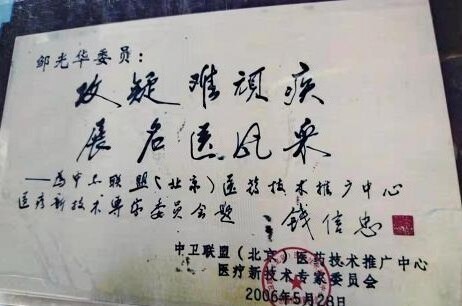 邹光华委员：
攻疑难顽疾
展名医风采
——为中卫联盟（北京）医药技术推广中心
医疗新技术专家委员会题 钱信忠
中卫联盟（北京）医药技术推广中心
医疗新技术专家委员会
2006年5月28日